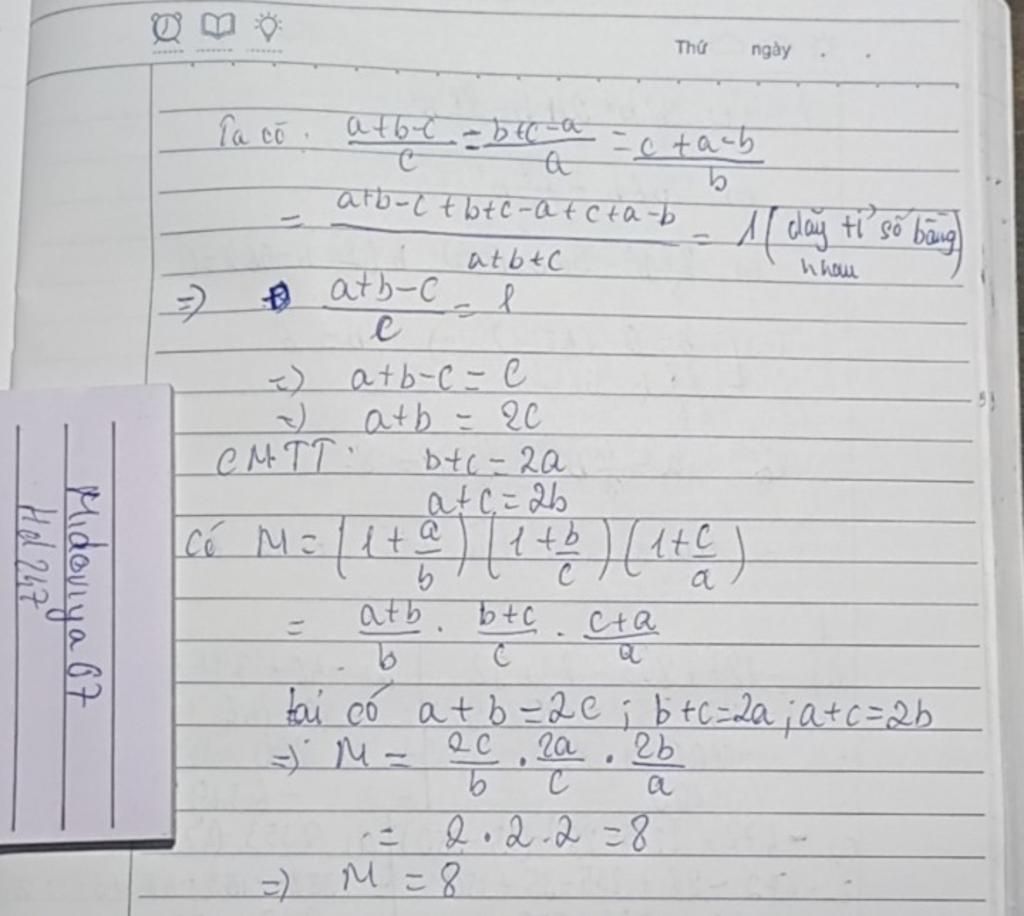 Thứ ngày . .
Ta có: \frac{a+b-c}{c} = \frac{b+c-a}{a} = \frac{c+a-b}{b}
= \frac{a+b-c+b+c-a+c+a-b}{a+b+c} = 1 (dãy tỉ số bằng nhau)
=> \frac{a+b-c}{c} = 1
=> a+b-c = c
=> a+b = 2c
CMTT: b+c = 2a
a+c = 2b
Có M = (1+\frac{a}{b})(1+\frac{b}{c})(1+\frac{c}{a})
= \frac{a+b}{b} . \frac{b+c}{c} . \frac{c+a}{a}
lại có a+b=2c; b+c=2a; a+c=2b
=> M = \frac{2c}{b} . \frac{2a}{c} . \frac{2b}{a}
= 2.2.2 = 8
=> M = 8
Midoviya67
Hd247